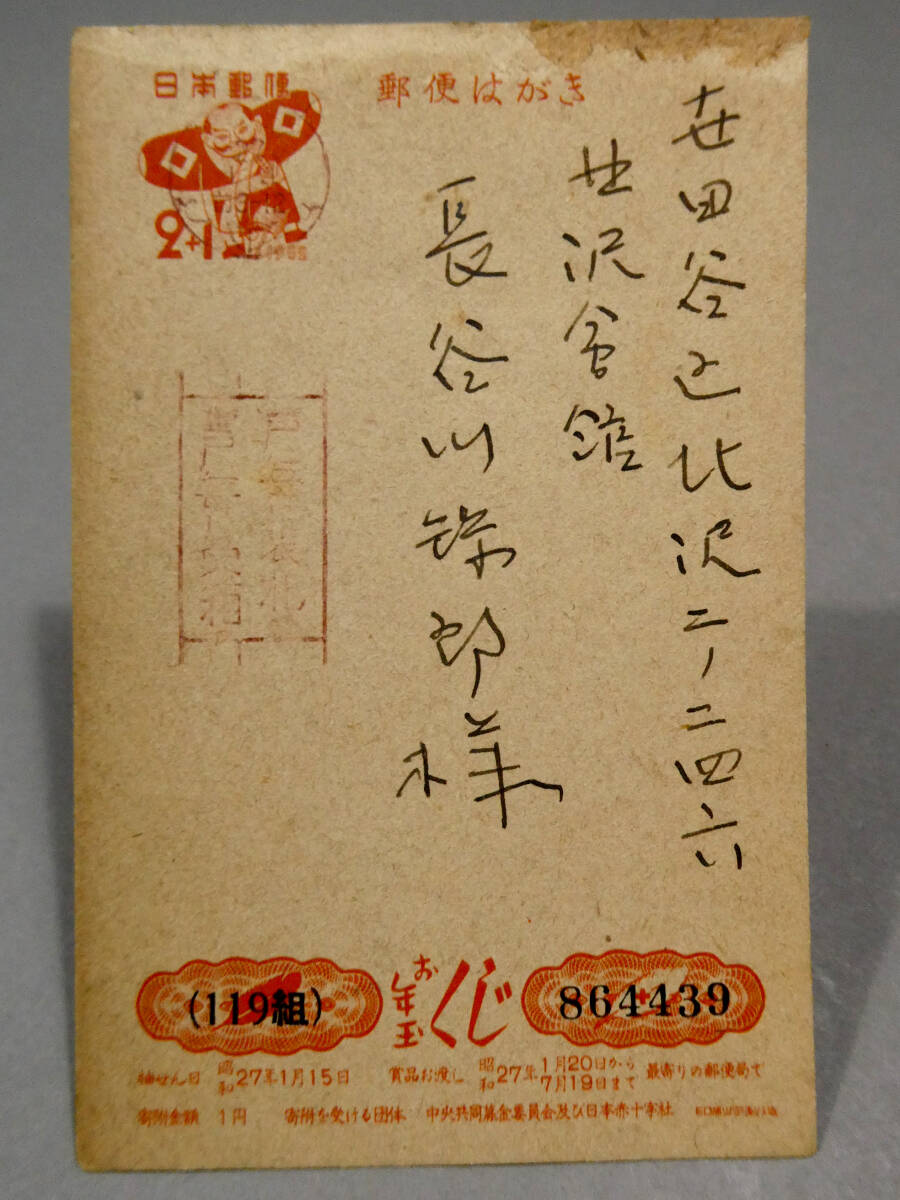 日本郵便
郵便はがき
2+1
1952
世田谷区北沢二ノ二四六
北沢会館
長谷川郎様
(119組)
お年玉くじ
864439
抽せん日 昭和27年1月15日 賞品お渡し 昭和27年1月20日から7月19日まで 最寄りの郵便局で
寄附金額 1円 寄附を受ける団体 中央共同募金委員会及び日本赤十字社